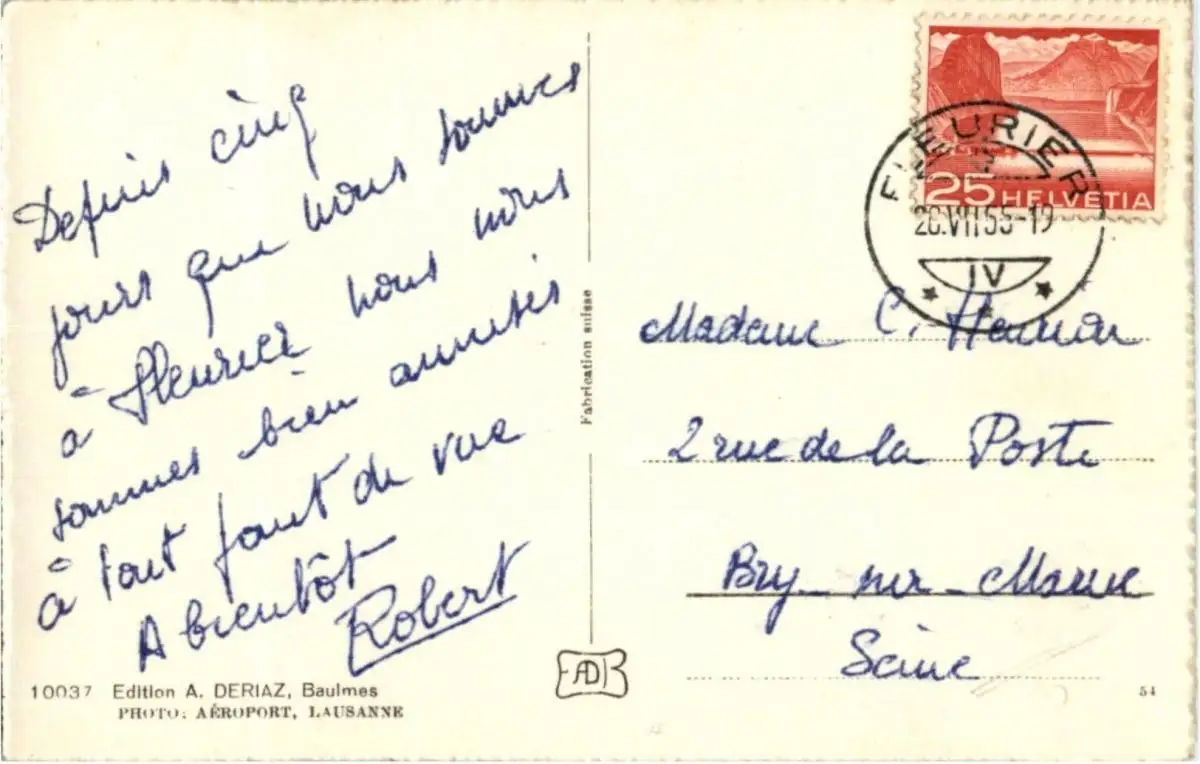 Depuis cinq
jours que nous sommes
à Fleurier nous nous
sommes bien amusés
à tout point de vue
A bientôt
Robert
10037 Edition A. DERIAZ, Baulmes
PHOTO: AÉROPORT, LAUSANNE
Fabrication suisse
ADB
25 HELVETIA
FLEURIER
VII 55-19
IV
Madame C.
2 rue de la Poste
Bry-sur-Marne
Seine
54